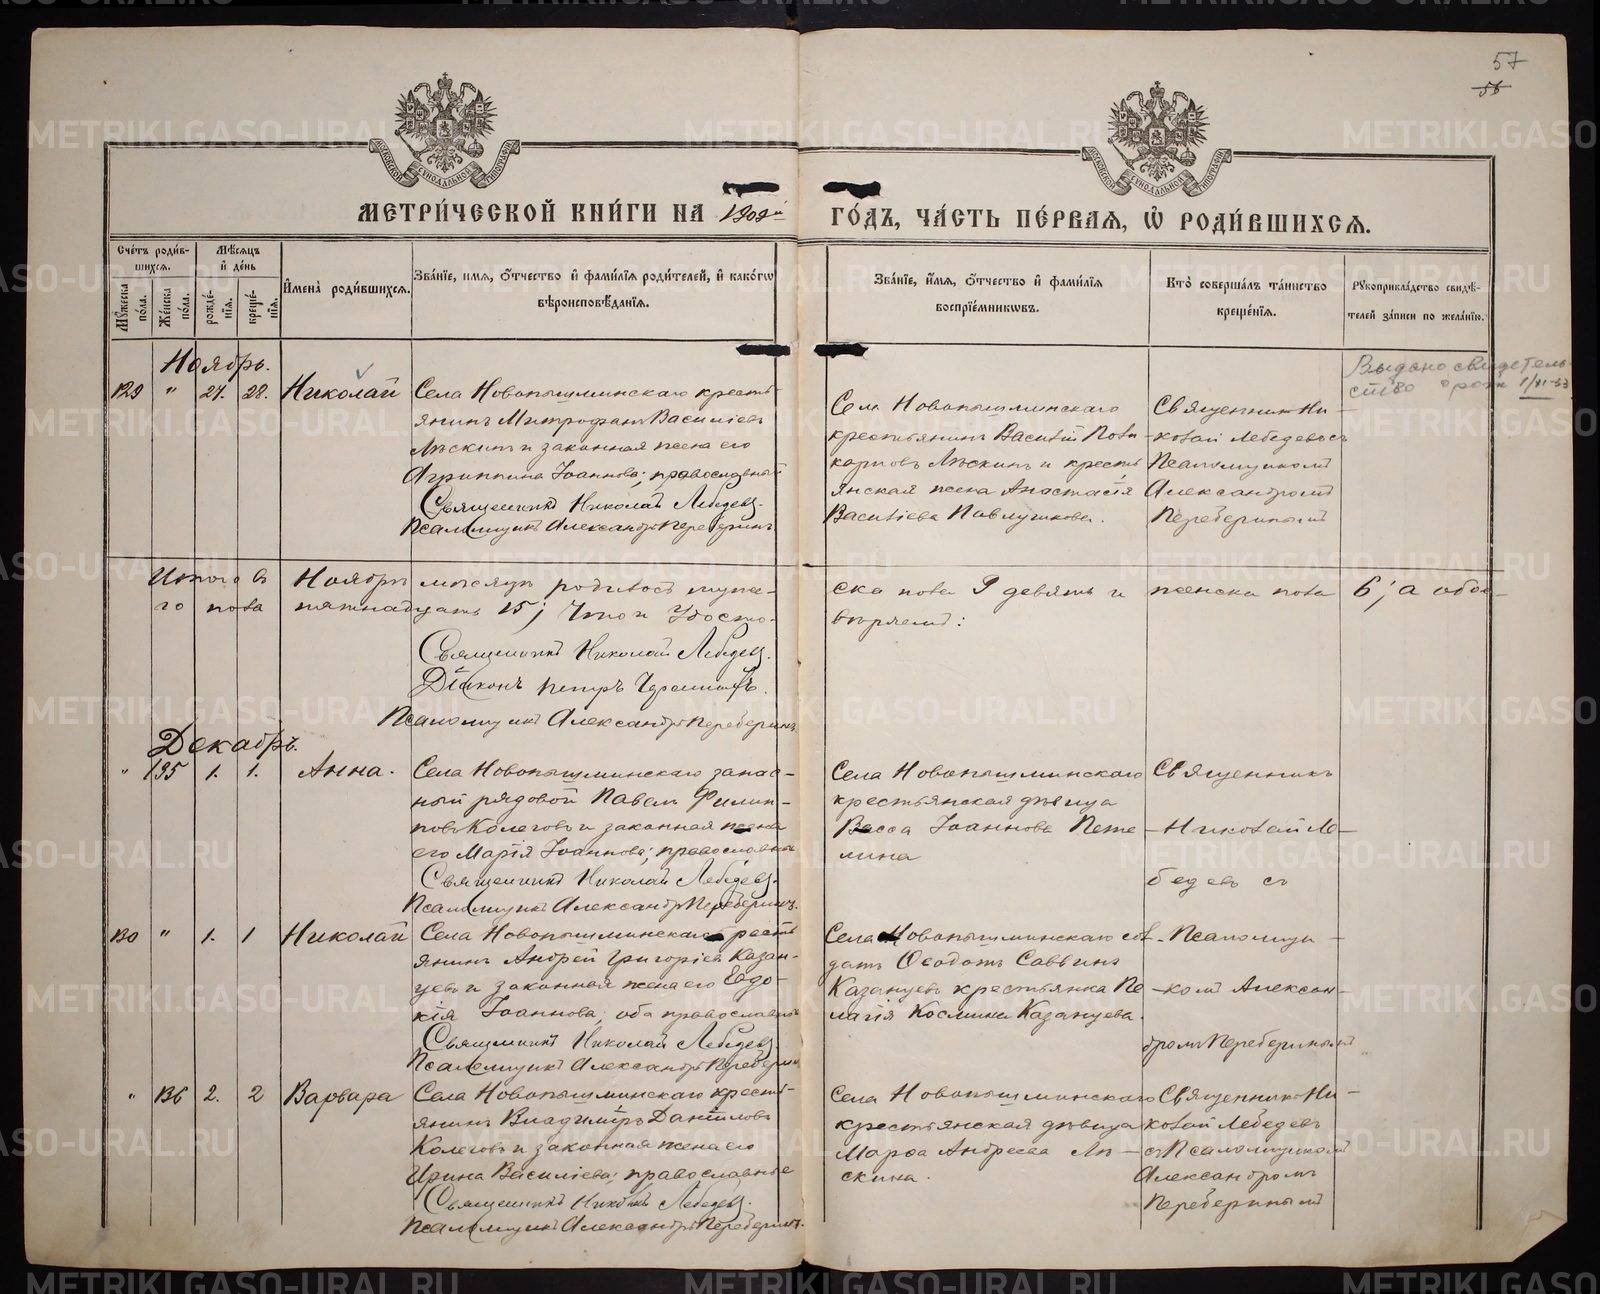 57
56
МОСКОВСКОЙ СѴНОДАЛЬНОЙ ТИПОГРАФІИ
МОСКОВСКОЙ СѴНОДАЛЬНОЙ ТИПОГРАФІИ
МЕТРИ́ЧЕСКОЙ КНИ́ГИ НА 1909й ГО́ДЪ, ЧА́СТЬ ПЕ́РВАѦ, Ѡ РОДИ́ВШИХСѦ.
Сче́тъ роди́в-
шихсѧ.
Мѹ́жеска по́ла.
Же́нска по́ла.
Мѣ́сѧцъ
и҆ де́нь
рожде́-
нїѧ.
креще́-
нїѧ.
И҆мена̀ роди́вшихсѧ.
Зва́нїе, и҆мѧ, о҆́тчество и҆ фами́лїѧ роди́телей, и҆ како́гѡ
вѣроисповѣ́данїѧ.
Зва́нїе, и҆́мѧ, о҆́тчество и҆ фами́лїѧ
воспрїе́мниковъ.
Кто̀ соверша́лъ та́инство
креще́нїѧ.
Рѹкоприкла́дство свидѣ́-
телей за́писи по жела́нїю.
Ноябрь.
129 " 27. 28. Николай
Села Новопышминскаго кресть-
янинъ Митрофанъ Василіевъ
Лѣскинъ и законная жена его
Агриппина Іоаннова; православный
Священникъ Николай Лебедевъ.
Псаломщикъ Александръ Переберинъ
Села Новопышминскаго
крестьянинъ Василій Поли
карповъ Лѣскинъ и кресть
янская жена Анастасія
Василіева Павлушкова.
Священникъ Ни-
колай Лебедевъ съ
Псаломщикомъ
Александромъ
Переберинымъ
Выдано свидетель-
ство о рожд
Итого въ Ноябрѣ мѣсяцѣ родилось муже-
ска пола 9 девять и женска пола 6; а обое-
го пола пятнадцать 15; Что и удосто-
вѣряемъ:
Священникъ Николай Лебедевъ.
Діаконъ Петръ
Псаломщикъ Александръ Переберинъ
Декабрь.
" 135 1. 1. Анна.
Села Новопышминскаго запас-
ный рядовой Павелъ Филип-
повъ Колеговъ и законная жена
его Марія Іоаннова; православн
Священникъ Николай Лебедевъ.
Псаломщикъ Александръ Переберинъ.
Села Новопышминскаго
крестьянская дѣвица
Васса Іоаннова Пете
лина
Священникъ
-Николай Ле-
бедевъ съ
130 " 1. 1 Николай
Села Новопышминскаго кресть
янинъ Андрей Григоріевъ Казан-
цевъ и законная жена его Евдо-
кія Іоаннова, оба православные
Священникъ Николай Лебедевъ.
Псаломщикъ Александръ Переберин
Села Новопышминскаго сол-
датъ Ѳеодотъ Саввинъ
Казанцевъ крестьянка Пе
лагія Космина Казанцева.
Псаломщи-
-комъ Алексан-
дромъ Переберинымъ
" 136 2. 2 Варвара
Села Новопышминскаго кресть-
янинъ Владиміръ Даніиловъ
Колеговъ и законная жена его
Ирина Василіева; православные
Священникъ Николай Лебедевъ.
Псаломщикъ Александръ Переберинъ.
Села Новопышминскаго
крестьянская дѣвица
Марѳа Андреева Лѣ-
скина.
Священникъ Ни-
колай Лебедевъ
съ Псаломщикомъ
Александромъ
Переберинымъ
METRIKI.GASO-URAL.RU